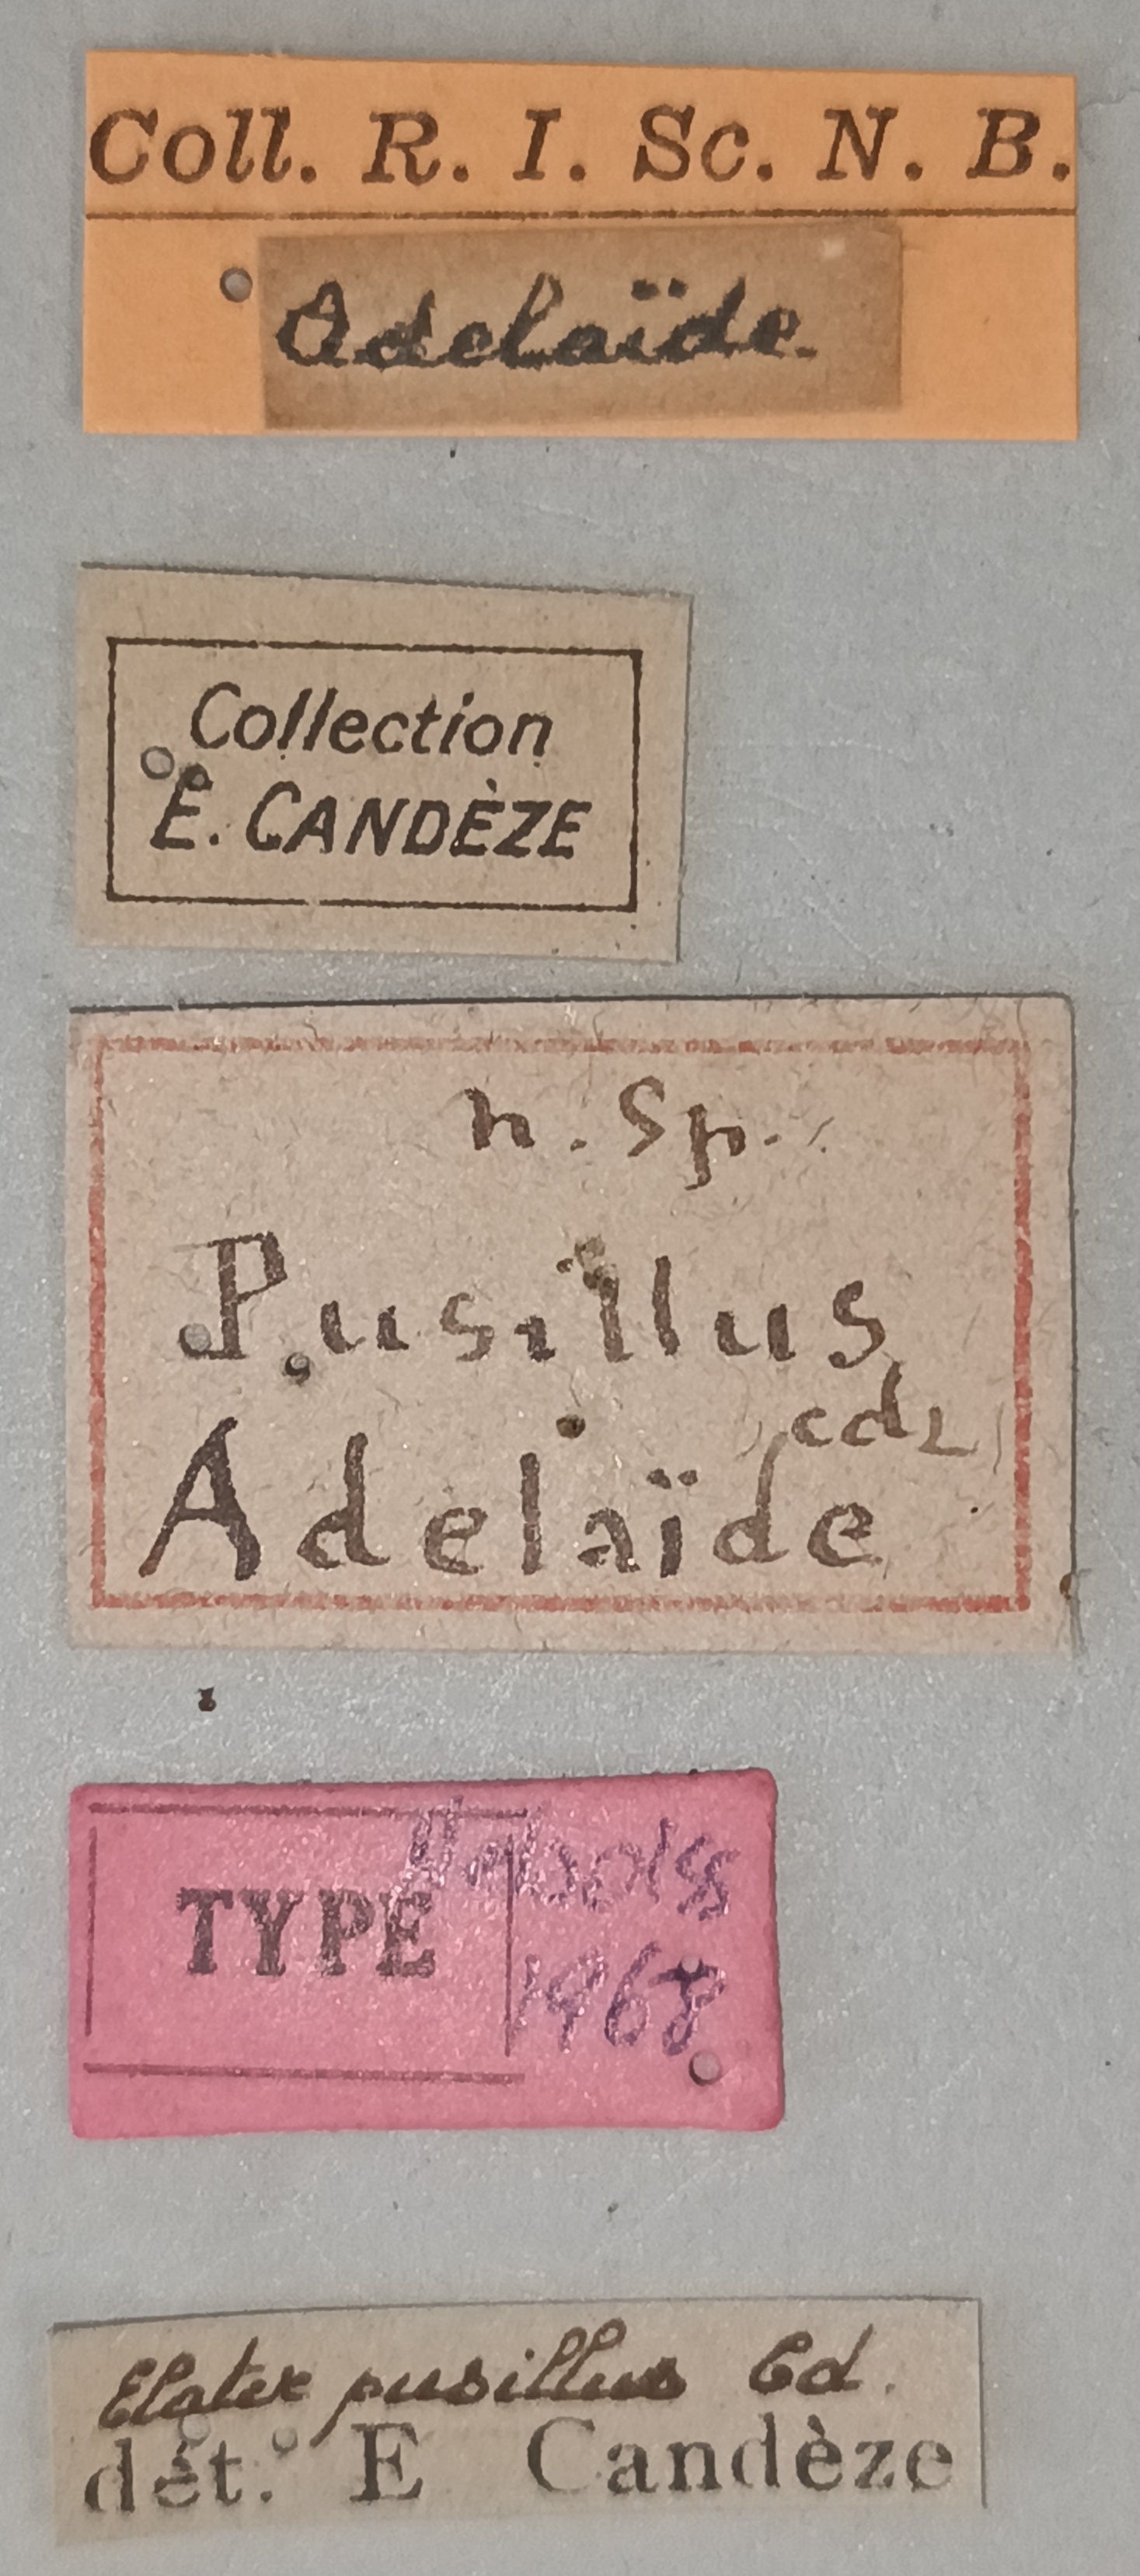 Coll. R. I. Sc. N. B.
Adelaïde.
Collection
E. CANDÈZE
n. Sp.
Pusillus
cdz
Adelaïde
TYPE
1968
Elater pusillus Cd.
dét. E Candèze